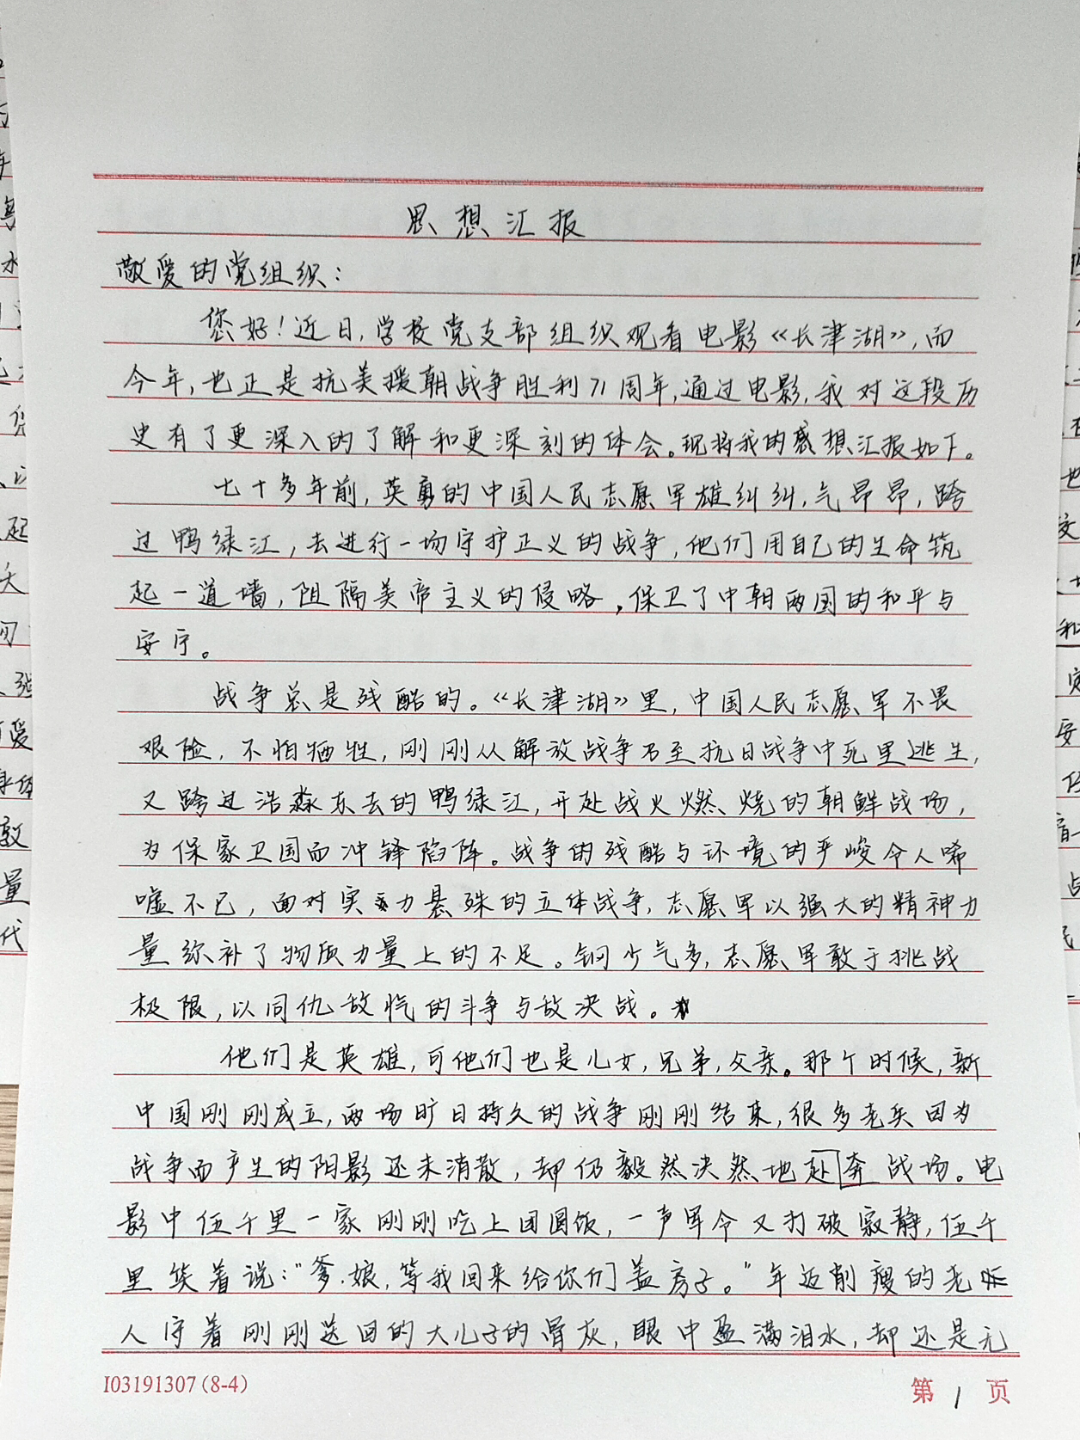 思想汇报
敬爱的党组织：
您好！近日，学校党支部组织观看电影《长津湖》，而
今年，也正是抗美援朝战争胜利71周年，通过电影，我对这段历
史有了更深入的了解和更深刻的体会。现将我的感想汇报如下。
七十多年前，英勇的中国人民志愿军雄纠纠，气昂昂，跨
过鸭绿江，去进行一场守护正义的战争，他们用自己的生命筑
起一道墙，阻隔美帝主义的侵略，保卫了中朝两国的和平与
安宁。
战争总是残酷的。《长津湖》里，中国人民志愿军不畏
艰险，不怕牺牲，刚刚从解放战争乃至抗日战争中死里逃生，
又跨过浩淼东去的鸭绿江，开赴战火燃烧的朝鲜战场，
为保家卫国而冲锋陷阵。战争的残酷与环境的严峻令人唏
嘘不已，面对实力悬殊的立体战争，志愿军以强大的精神力
量弥补了物质力量上的不足。钢少气多，志愿军敢于挑战
极限，以同仇敌忾的斗争与敌决战。
他们是英雄，可他们也是儿女，兄弟，父亲。那个时候，新
中国刚刚成立，两场旷日持久的战争刚刚结束，很多老兵因为
战争而产生的阴影还未消散，却仍毅然决然地赴奔战场。电
影中伍千里一家刚刚吃上团圆饭，一声军令又打破寂静，伍千
里笑着说：“爹、娘，等我回来给你们盖房子。”年迈削瘦的老
人守着刚刚送回的大儿子的骨灰，眼中盈满泪水，却还是无
I03191307(8-4)
第1页